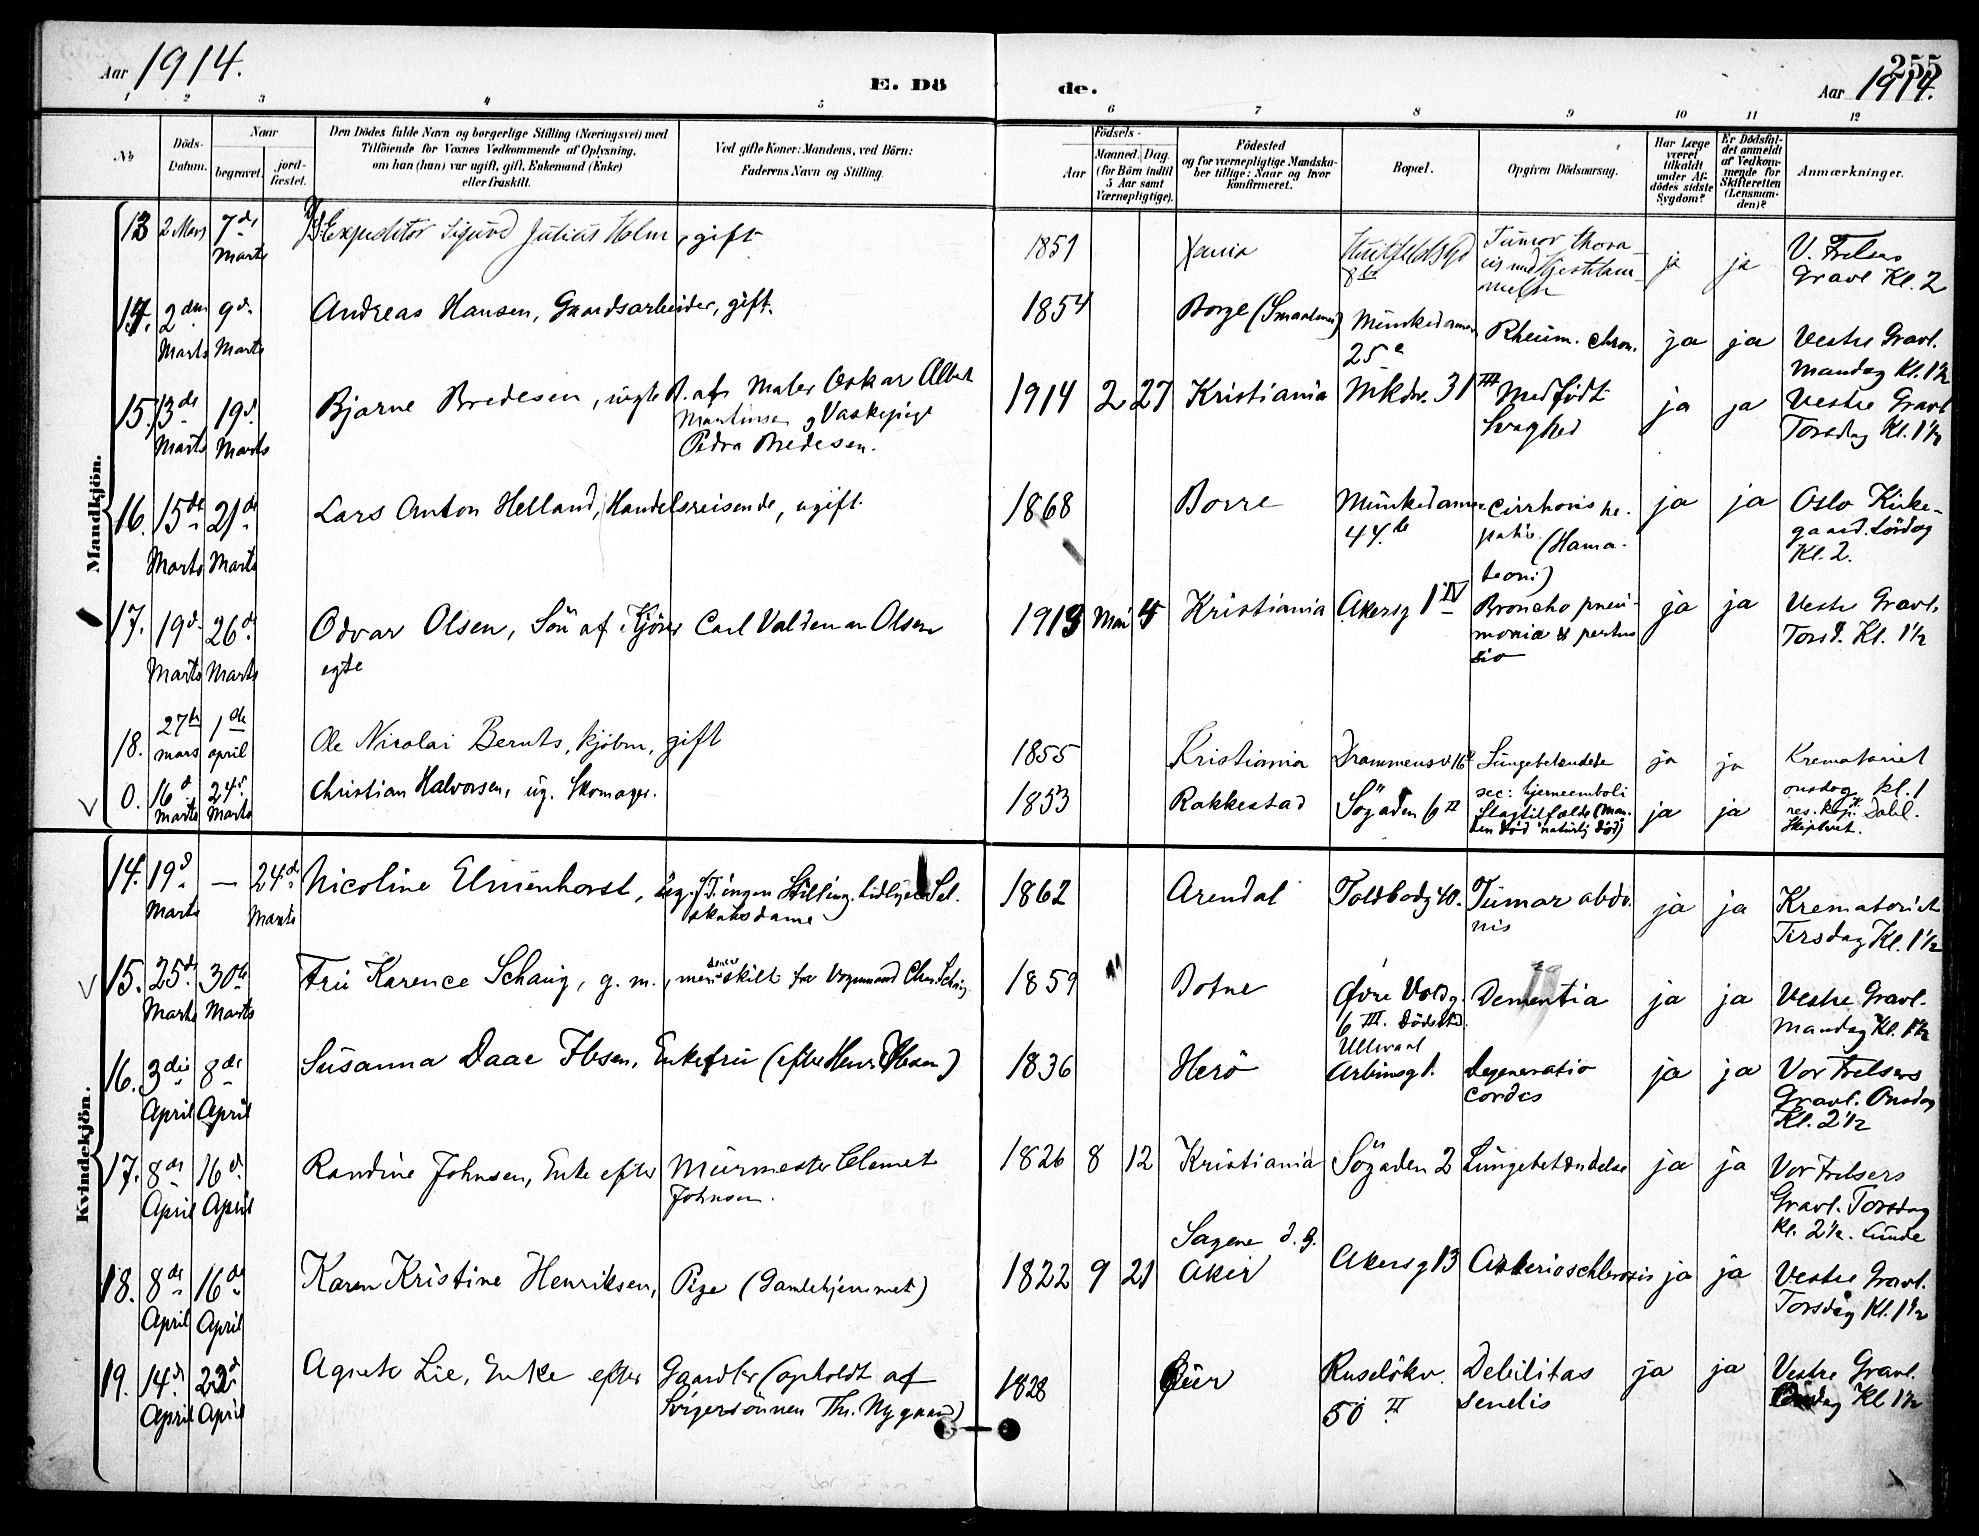 Aar 1914.
E. Dö
de.
255
Aar 1914.
1 2 3 4 5 6 7 8 9 10 11 12
No
Döds-
Datum.
Naar
begravet.
jord-
fæstet.
Den Dödes fulde Navn og borgerlige Stilling (Næringsvei) med
Tilföiende for Voxnes Vedkommende af Oplysning,
om han (hun) var ugift, gift, Enkemand (Enke)
eller fraskilt.
Ved gifte Koner: Mandens, ved Börn:
Faderens Navn og Stilling.
Födsels-
Aar
Maaned. Dag.
(for Börn indtil
5 Aar samt
Værnepligtige).
Födested
og for værnepligtige Mandska-
ber tillige: Naar og hvor
konfirmeret.
Bopæl.
Opgiven Dödsaarsag.
Har Læge
været
tilkaldt
under Af-
dödes sidste
Sygdom?
Er Dödsfal-
det anmeldt
af Vedkom-
mende for
Skifteretten
(Lensman-
den)?
Anmærkninger.
Mandkjön.
13 2 Mars 7de Marts Expeditör Sigurd Julius Holm, gift 1851 Xania Huitfeldsgd 8 Tumor thora-
cis med ja ja V. Frelsers
Gravl Kl. 2
14. 2den Marts 9d. Marts Andreas Hansen, Gaardsarbeider, gift. 1854 Borge (Smaalenene) Munkedamsv 25 Rheum. chron. ja ja Vestre Gravl.
Mandag Kl. 1½
15. 13de Marts 19d Marts Bjarne Bredesen, uegte B. af Maler Oskar Albert
Martinsen og Vaskepige
Petra Bredesen. 1914 2 27 Kristiania Mkdv. 31 III Medfödt
Svaghed ja ja Vestre Gravl
Torsdag Kl. 1½
16. 15de Marts 21de Marts Lars Anton Helland, Handelsreisende, ugift. 1868 Borre Munkedamsv 44.b Cirrhosis he-
patis (Hama-
teom) ja ja Oslo Kirke-
gaard. Lördag
Kl. 2.
17. 19d. Marts 26d. Marts Odvar Olsen, Sön af Kjörer Carl Valdemar Olsen
egte 1913 Mai 4 Kristiania Akersg 1 IV Broncho pneu-
monia & pertus
sio ja ja Vestre Gravl.
Torsd. Kl. 1½
18. 27de mars 1de april Ole Nicolai Bernts, kjöbm, gift 1855 Kristiania Drammensv. 16 Lungebetændelse
sec: hjerneemboli ja ja Krematoriet
onsdag kl. 1
0. 16d Marts 24d. Marts Christian Halvorsen, ug. Skomager. 1853 Rakkestad Sögaden 6 II Slagtilfælde (Man-
den död naturlig död) ja ja res. kap. Dahl.
Skiptvet.
Kvindekjön.
14. 19d Marts — 24d. Marts Nicoline Elmenhorst, ug. f. D. ingen Stilling. tidligere Sel-
skabsdame 1862 Arendal Toldbodg 40. Tumor abdo.
nis ja ja Krematoriet
Tirsdag Kl. 1½
15. 25d. Marts 30te Marts Fru Karence Schaug, g. m., men skilt fra Vognmand Chr. Schaug 1859 Botne Øvre Voldg.
6 III. Dödssted
Ullevaal Dementia ja ja Vestre Gravl.
Mandag Kl. 1½
16. 3die April 8de April Susanna Daae Ibsen, Enkefru (efter Henr. Ibsen) 1836 Herö Arbinsg 1. Degeneratio
cordis ja ja Vor Frelsers
Gravl. Onsdag
Kl. 2½
17. 8de April 16d. April Randine Johnsen, Enke efter Murmester Clemet
Johnsen. 1826 8 12 Kristiania Sögaden 2 Lungebetændelse ja ja Vor Frelsers
Gravl. Torsdag
Kl. 2½. Lunde
18. 8de April 16de April Karen Kristine Henriksen, Pige (Gamlehjemmet) 1822 9 21 Sagene d. G.
Aker Akersg 13 Arterioschlerosis ja ja Vestre Gravl.
Torsdag Kl. 1½
19. 14d. April 22d April Agnete Lie, Enke efter Gaardbr (opholdt af
Svigersönnen Th. Nygaard) 1828 Ruselökv.
50 II Debilitas
senilis ja ja Vestre Gravl.
Kl 1½